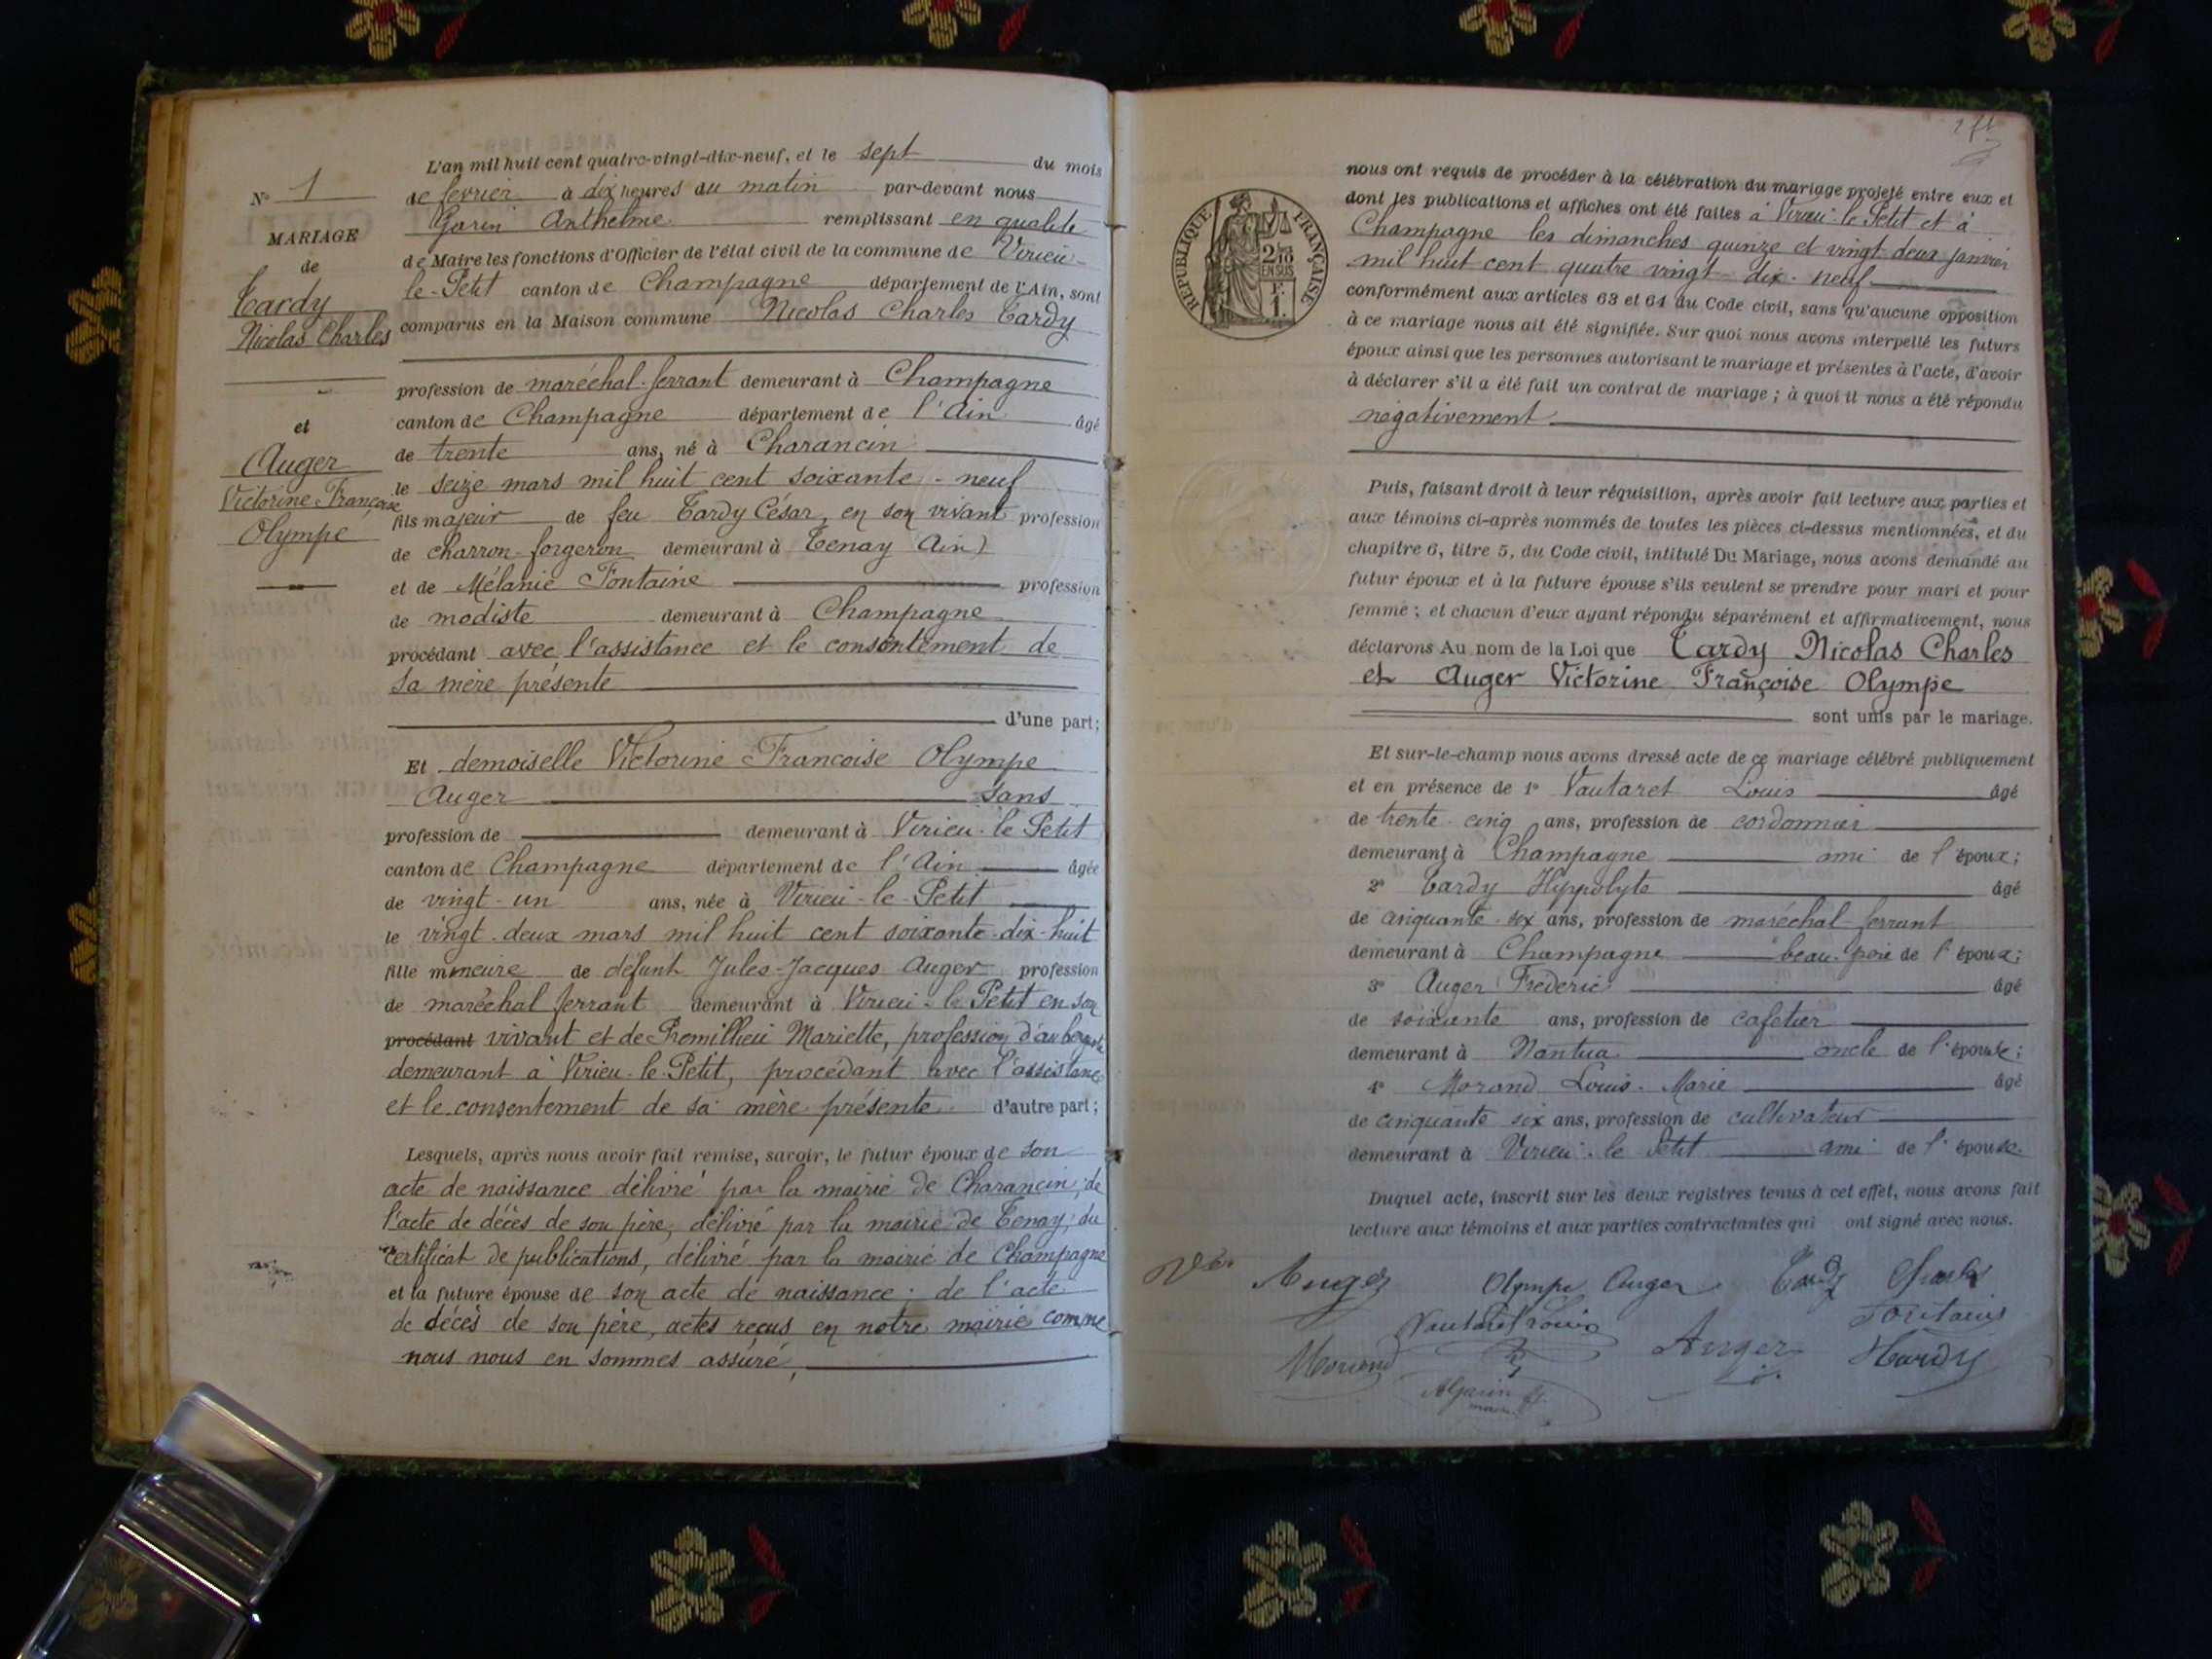 L'an mil huit cent quatre-vingt-dix-neuf, et le sept du mois
de fevrier à dix heures du matin par-devant nous
Garin Anthelme remplissant en qualité
de Maire les fonctions d'Officier de l'état civil de la commune de Virieu-
le-Petit canton de Champagne département de l'Ain, sont
comparus en la Maison commune Nicolas Charles Tardy
profession de maréchal-ferrant demeurant à Champagne
canton de Champagne département de l'Ain âgé
de trente ans, né à Charancin
le seize mars mil huit cent soixante-neuf
fils majeur de feu Tardy César, en son vivant profession
de charron-forgeron demeurant à Tenay Ain)
et de Mélanie Fontaine profession
de modiste demeurant à Champagne
procédant avec l'assistance et le consentement de
sa mère présente
d'une part;
Et demoiselle Victorine Francoise Olympe
Auger sans
profession de demeurant à Virieu-le-Petit
canton de Champagne département de l'Ain âgée
de vingt-un ans, née à Virieu-le-Petit
le vingt-deux mars mil huit cent soixante-dix-huit
fille mineure de défunt Jules-Jacques Auger profession
de maréchal ferrant demeurant à Virieu-le-Petit en son
procédant vivant et de Remillieu Mariette, profession d'aubergiste
demeurant à Virieu-le-Petit, procédant avec l'assistance
et le consentement de sa mère présente d'autre part;
Lesquels, après nous avoir fait remise, savoir, le futur époux de son
acte de naissance délivré par la mairie de Charancin; de
l'acte de décès de son père, délivré par la mairie de Tenay; du
certificat de publications, délivré par la mairie de Champagne
et la future épouse de son acte de naissance; de l'acte
de décès de son père, actes reçus en notre mairie comme
nous nous en sommes assuré,
N° 1
MARIAGE
de
Tardy
Nicolas Charles
et
Auger
Victorine Françoise
Olympe
RÉPUBLIQUE FRANÇAISE
2/10
EN SUS
F.
1.
nous ont requis de procéder à la célébration du mariage projeté entre eux et
dont les publications et affiches ont été faites à Virieu-le-Petit et à
Champagne les dimanches quinze et vingt-deux janvier
mil huit cent quatre vingt-dix-neuf
conformément aux articles 63 et 64 du Code civil, sans qu'aucune opposition
à ce mariage nous ait été signifiée. Sur quoi nous avons interpellé les futurs
époux ainsi que les personnes autorisant le mariage et présentes à l'acte, d'avoir
à déclarer s'il a été fait un contrat de mariage; à quoi il nous a été répondu
négativement
Puis, faisant droit à leur réquisition, après avoir fait lecture aux parties et
aux témoins ci-après nommés de toutes les pièces ci-dessus mentionnées, et du
chapitre 6, titre 5, du Code civil, intitulé Du Mariage, nous avons demandé au
futur époux et à la future épouse s'ils veulent se prendre pour mari et pour
femme; et chacun d'eux ayant répondu séparément et affirmativement, nous
déclarons Au nom de la Loi que Tardy Nicolas Charles
et Auger Victorine Françoise Olympe
sont unis par le mariage.
Et sur-le-champ nous avons dressé acte de ce mariage célébré publiquement
et en présence de 1° Vautaret Louis âgé
de trente-cinq ans, profession de cordonnier
demeurant à Champagne ami de l'époux;
2° Tardy Hippolyte âgé
de cinquante-six ans, profession de maréchal-ferrant
demeurant à Champagne beau-père de l'époux;
3° Auger Frederic âgé
de soixante ans, profession de cafetier
demeurant à Nantua oncle de l'épouse;
4° Morand Louis-Marie âgé
de cinquante six ans, profession de cultivateur
demeurant à Virieu-le Petit ami de l'épouse.
Duquel acte, inscrit sur les deux registres tenus à cet effet, nous avons fait
lecture aux témoins et aux parties contractantes qui ont signé avec nous.
Auger Olympe Auger Tardy Charles
Vautaret Louis Fontaine
Morand Auger Hardy
A Garin
maire